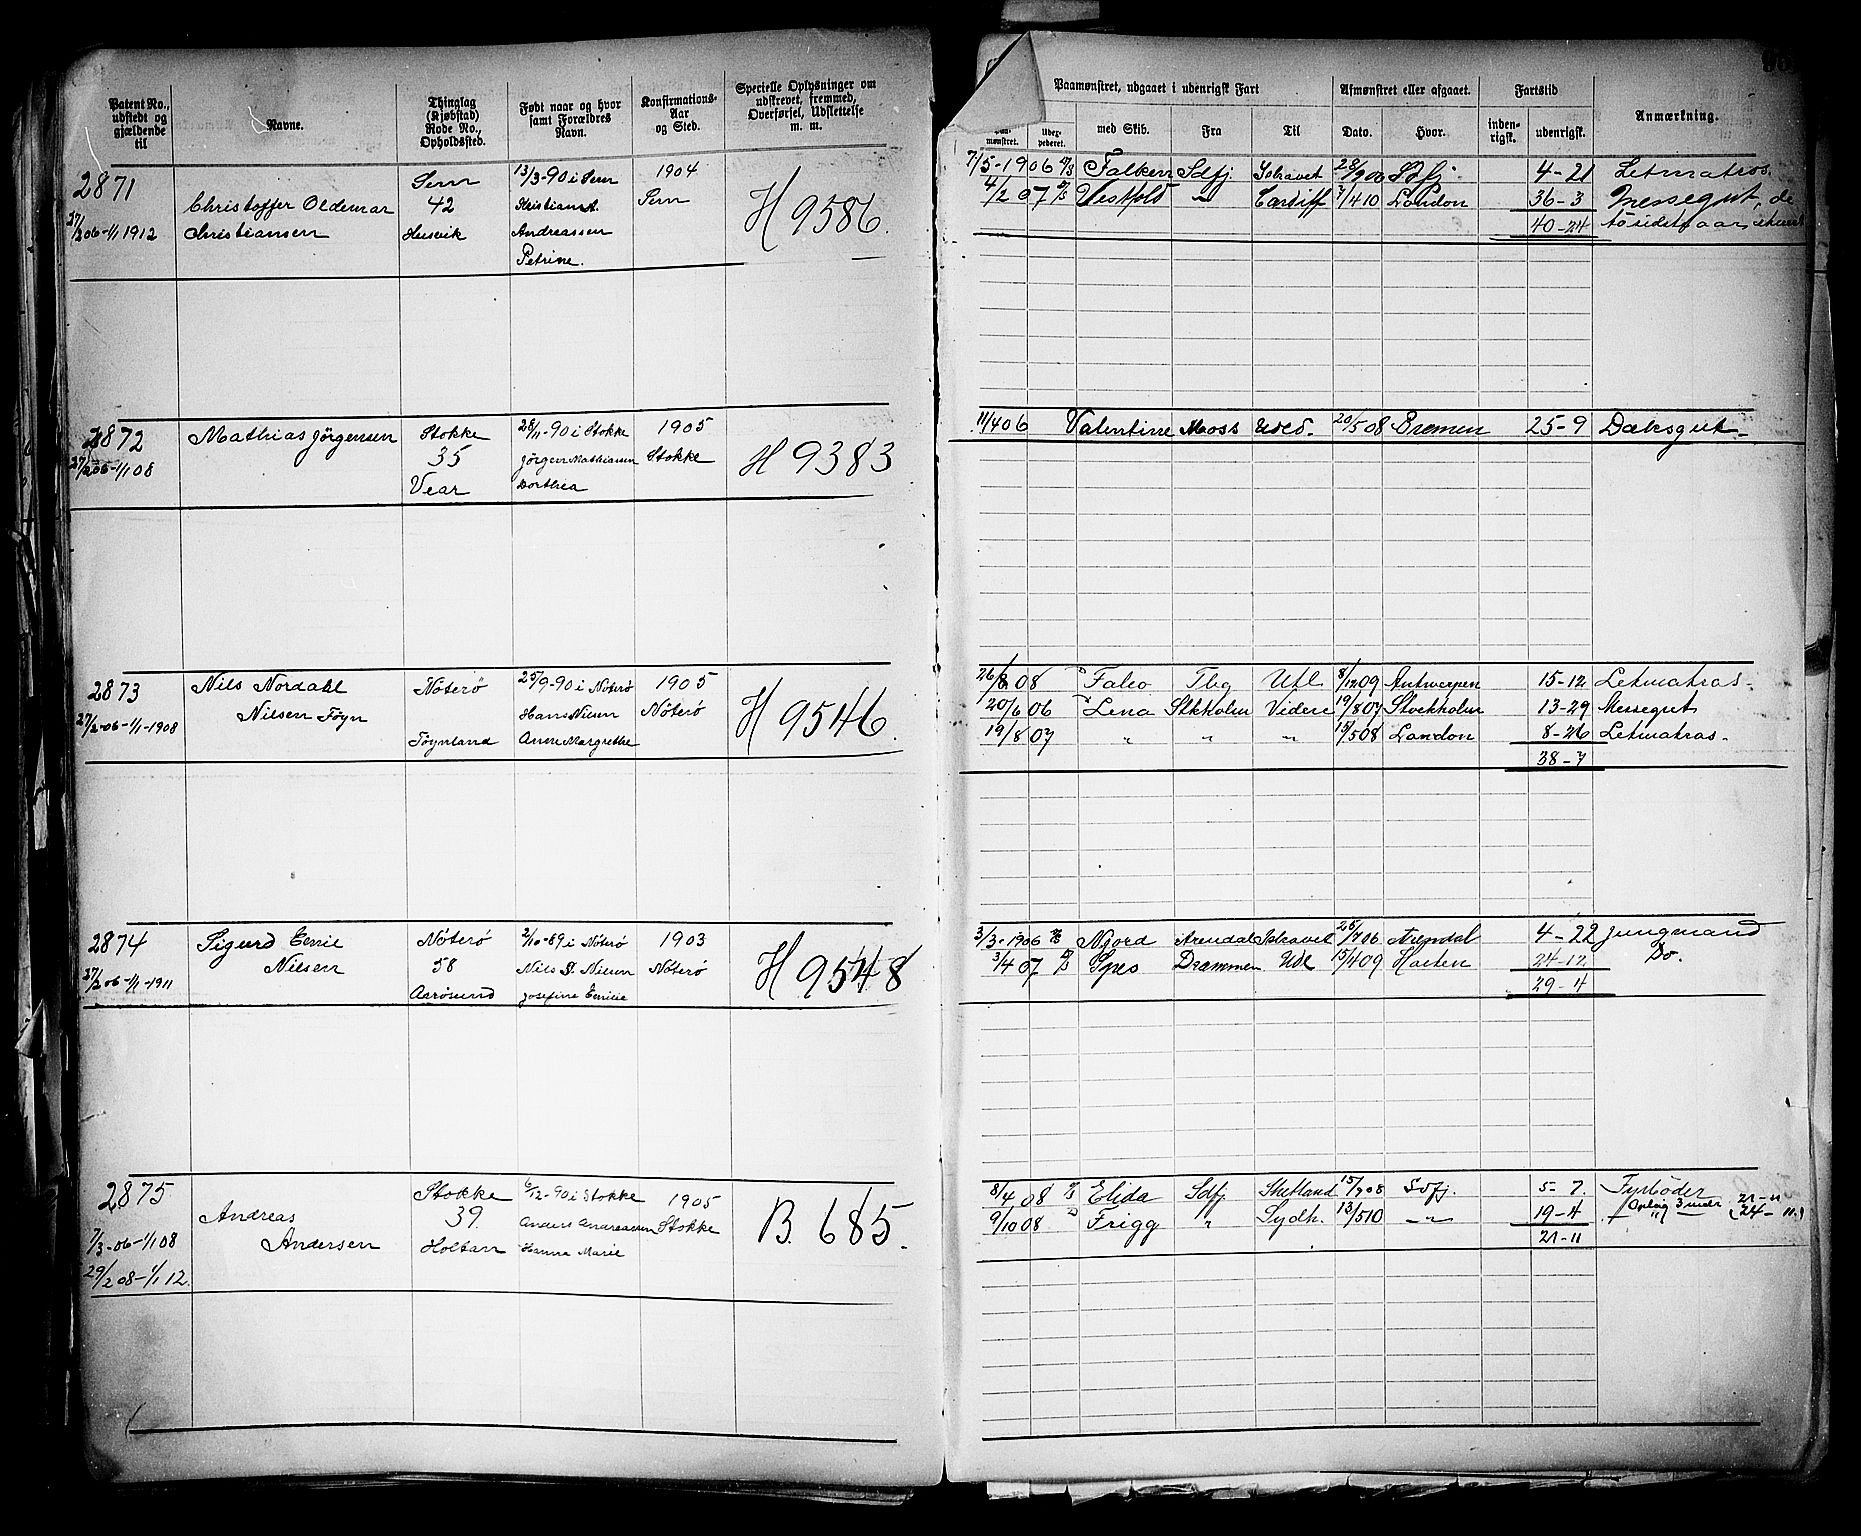 Patent No., udstedt og gjældende til
Navne.
Thinglag (Kjøbstad) Rode No., Opholdssted.
Født naar og hvor samt Forældres Navn.
Konfirmations- Aar og Sted.
Specielle Oplysninger om udskrevet, fremmed, Overførsel, Udslettelse m. m.
Paamønstret, udgaaet i udenrigsk Fart
mønstret.
med Skib.
Fra
Til
Afmønstret eller afgaaet.
Dato.
Hvor.
Fartstid
inden- rigsk.
udenrigsk.
Anmærkning.
2871
27/2 06-1/1 1912
Christoffer Oldemar
Christiansen
Sem
42
Husvik
13/3-90 i Sem
Kristian A.
Andreassen
Petrine.
1904
Sem
H 9586.
7/5-1906 Falken Sdfj. Ishavet 28/9 06 Sdfj. 4-21 Letmatros.
4/2 07 Vestfold " Cardiff 7/4 10 London 36-3 Messegut, de
40-24
2872
27/2 06-1/1 08
Mathias Jörgensen
Stokke
35
Vear
28/11-90 i Stokke
Jörgen Mathiassen
Dorthea
1905
Stokke
H 9383
11/4 06 Valentine Moss Uded. 20/5 08 Bremen 25-9 Dæksgut
2873
27/2-06-1/1-1908
Nils Nordahl
Nilsen Föyn
Nöterö
Föynland
25/9-90 i Nöterö
Hans Nilsen
Anne Margrethe
1905
Nöterö
H 9546.
26/8 08 Falco Tbg Utl 8/12 09 Antwerpen 15-12 Letmatros.
20/6 06 Lena Stkholm Videre 19/8 07 Stockholm 13-29 Messegut
19/8 07 " " " 15/5 08 London 8-26 Letmatros.
38-7
2874
27/2 06-1/1-1911
Sigurd Emil
Nilsen
Nöterö
58
Aarösund
2/10-89 i Nöterö
Nils S. Nilsen
Josefine Emilie
1903
Nöterö
H 9548
3/3-1906 Njord Arendal Ishavet 25/7 06 Arendal 4-22 Jungmand
3/4 07 Spes Drammen Utl 15/4 09 Horten 24-12 Do.
29-4
2875
7/3-06-1/1 08
29/2 08-1/1 12.
Andreas
Andersen
Stokke
39.
Holtan
6/12-90 i Stokke
Anders Andreassen
Hanna Marie
1905
Stokke
B. 685.
8/4 08 Elida Sdfj. Shetland 15/9 08 Sdfj. 5-7. Fyrböder
9/10 08 Frigg " Sydh. 13/5 10 " 19-4 Oplag 3 mdr 21-11
24-11
21-11